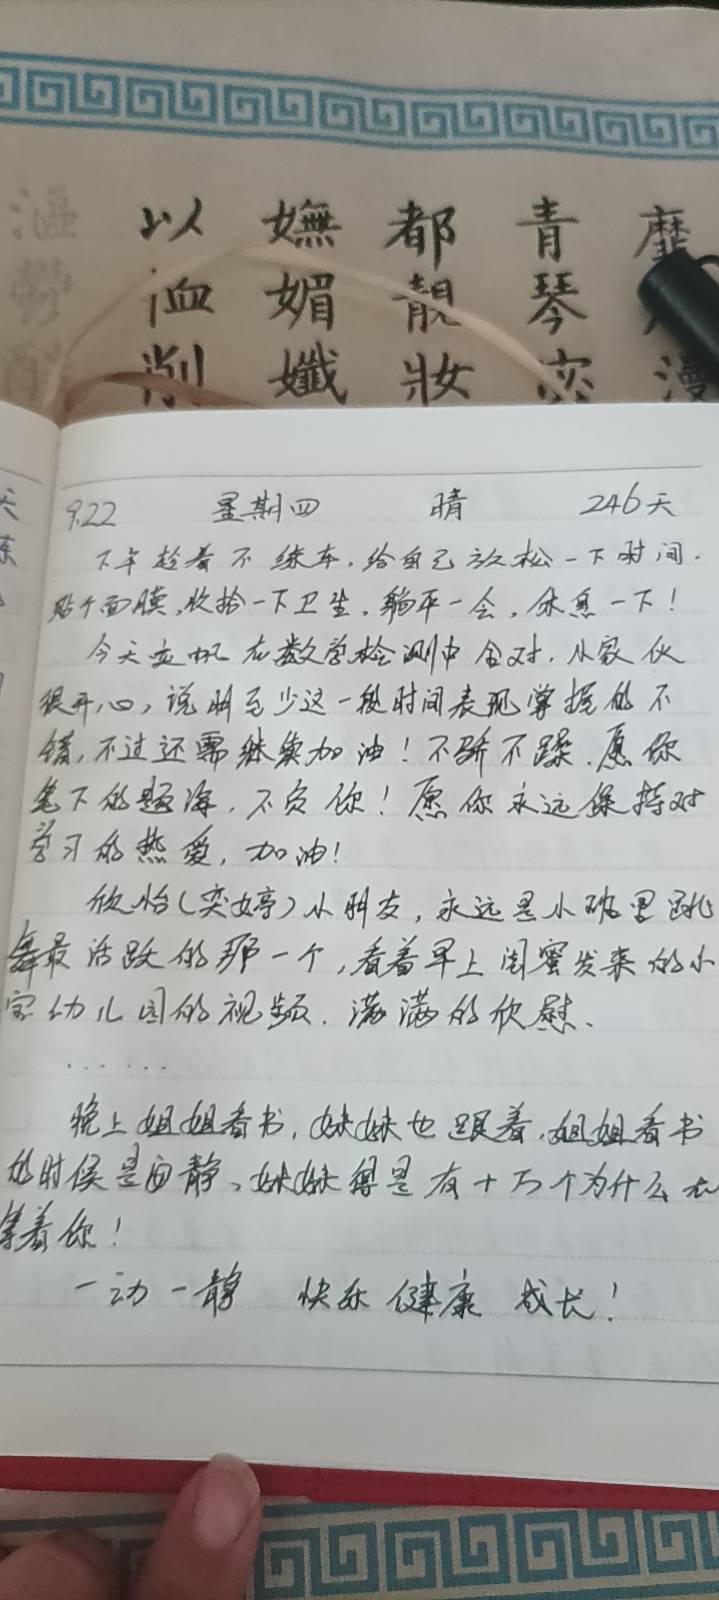 以 嫵 都 青 靡
恤 媚 靚 琴
削 孅 妝 宓 漫
9.22 星期四 晴 246天
下午趁着不练车,给自己放松一下时间.
贴个面膜,收拾一下卫生,躺平一会,休息一下!
今天 在数学检测中全对,小家伙
很开心,说明至少这一段时间表现掌握的不
错,不过还需继续加油!不骄不躁.愿你
笔下的题海,不负你!愿你永远保持对
学习的热爱,加油!
欣怡(奕婷)小朋友,永远是小班里跳
舞最活跃的那一个,看着早上闺蜜发来的小
宝幼儿园的视频.满满的欣慰、
......
晚上姐姐看书,妹妹也跟着,姐姐看书
的时候是安静、妹妹得是有十万个为什么在
等着你!
一动一静 快乐 健康 成长!